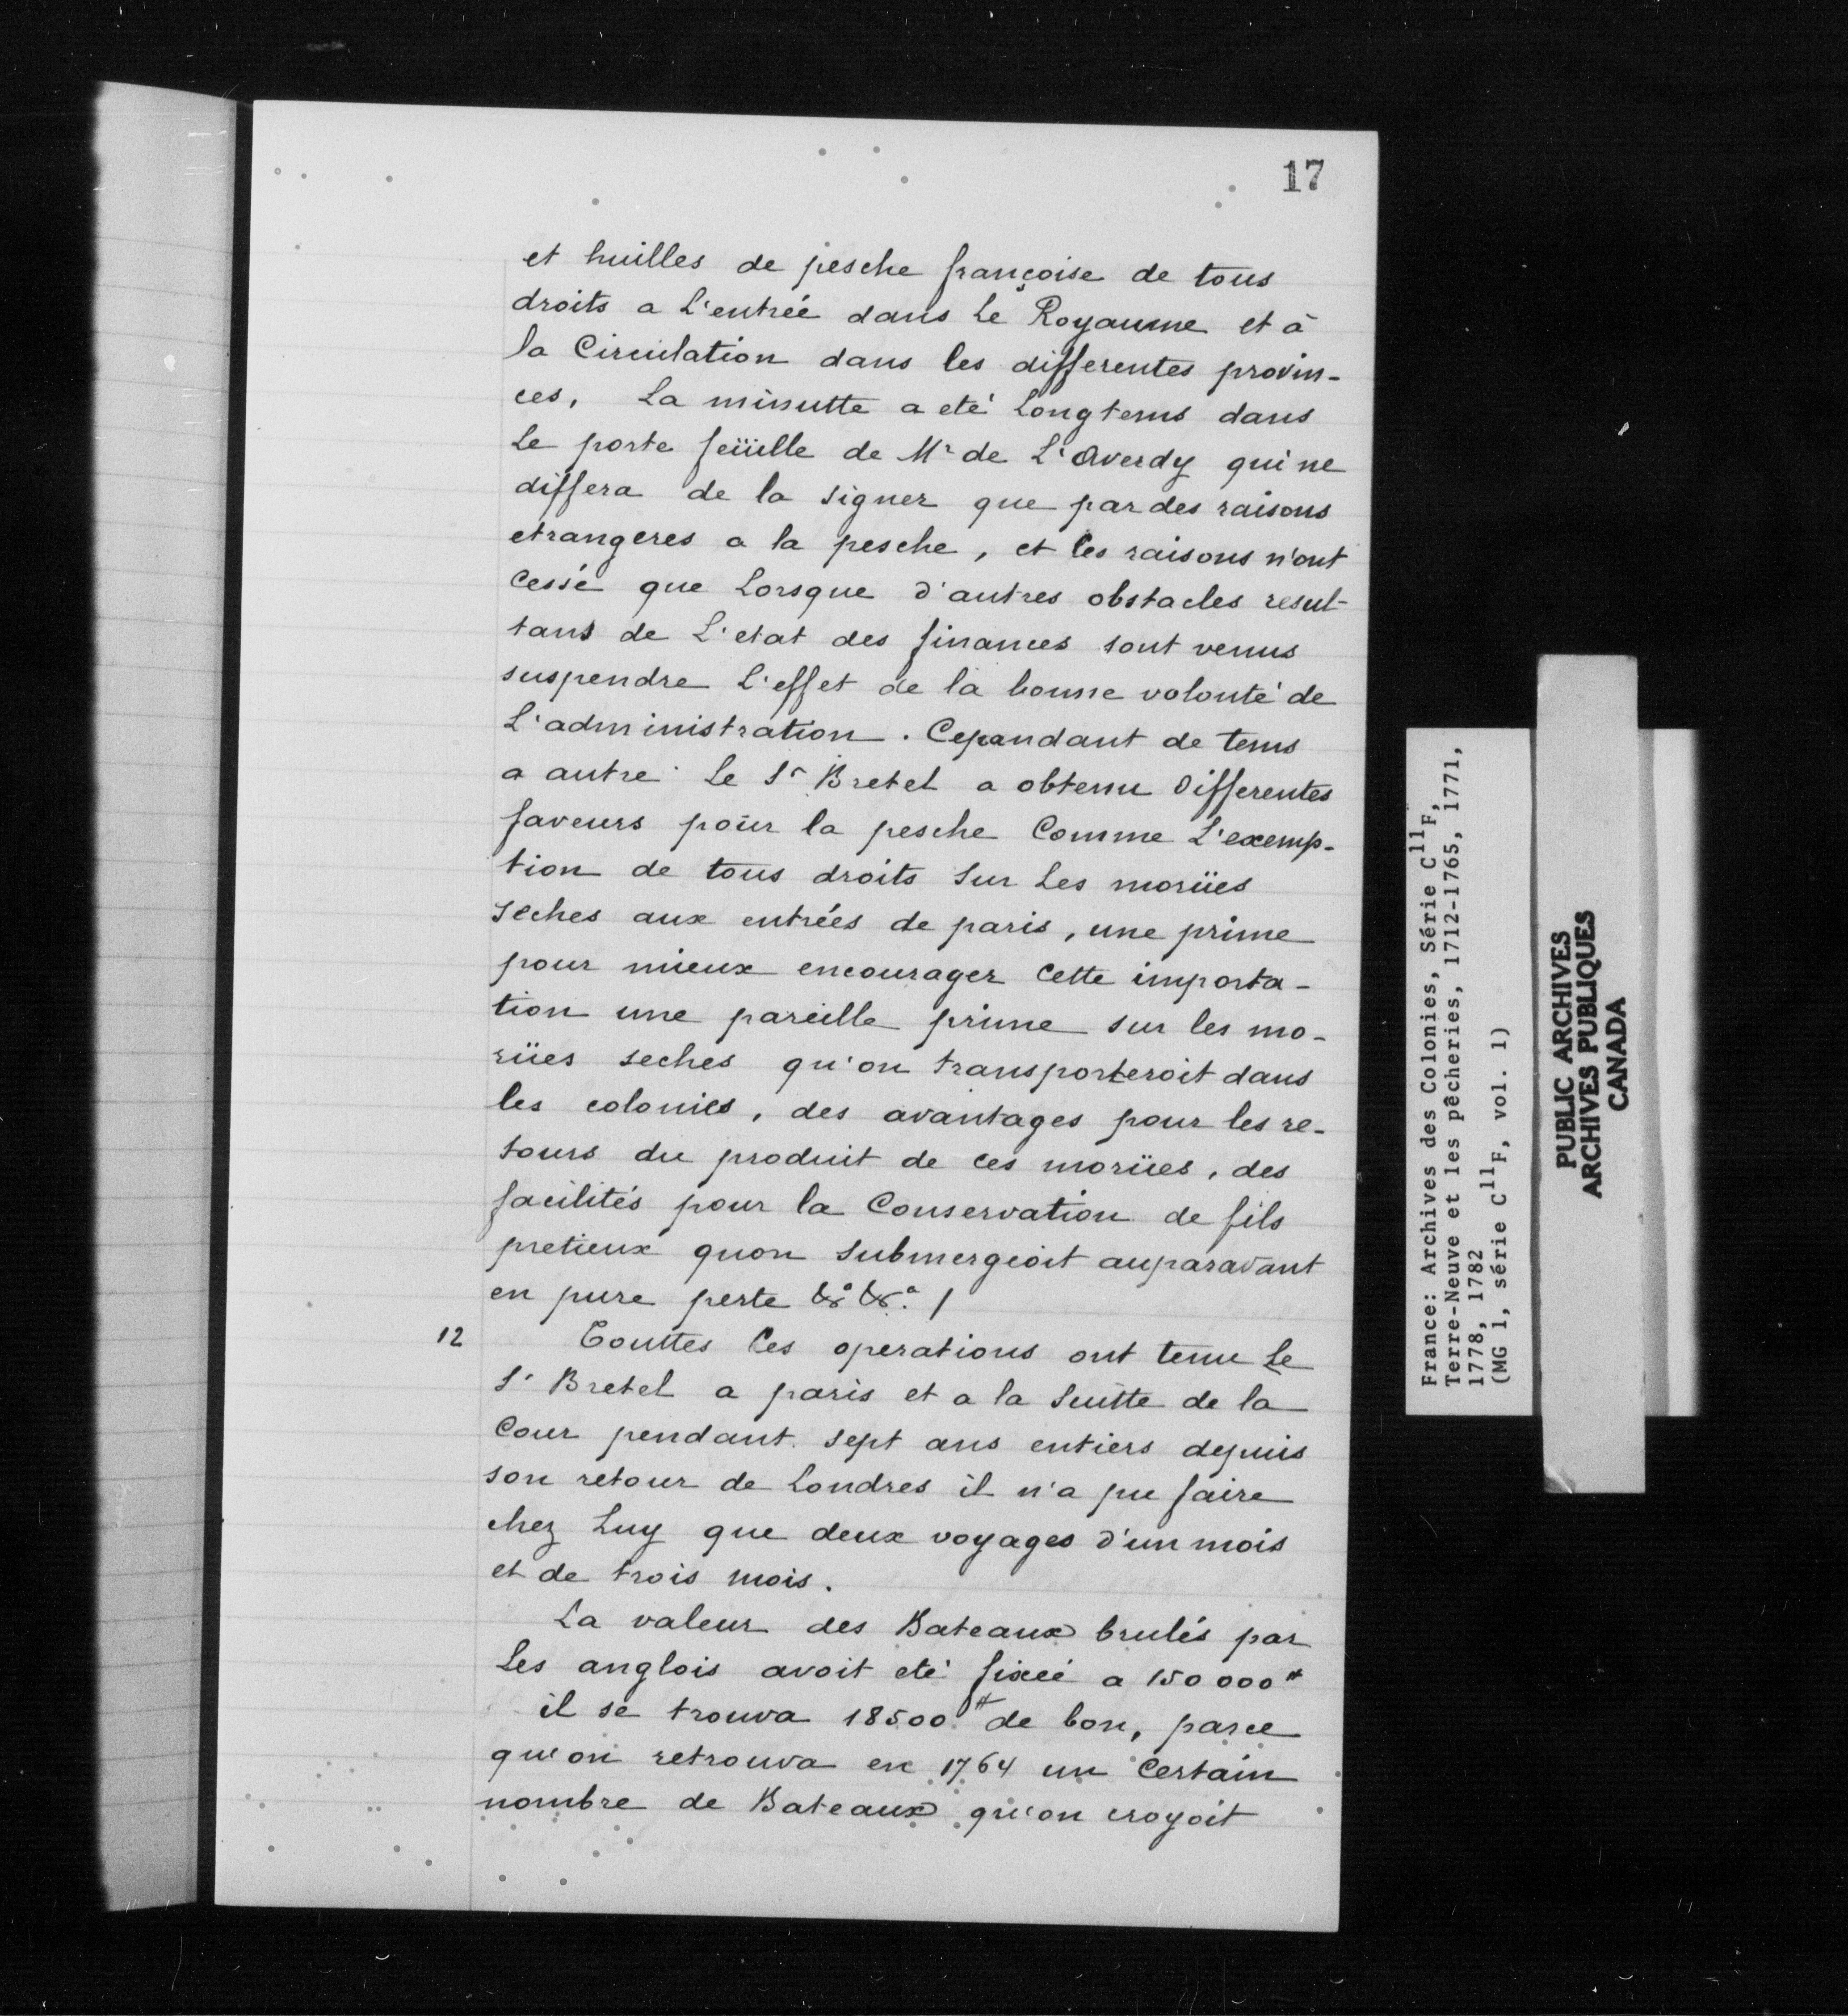 17
et huilles de pesche françoise de tous
droits a L'entrée dans Le Royaume et à
la Circulation dans les differentes provin-
ces, La minutte a eté Longtems dans
Le porte feüille de Mr de L'Averdy qui ne
differa de la signer que par des raisons
etrangeres a la pesche, et les raisons n'ont
Cessé que Lorsque d'autres obstacles resul-
tans de L'etat des finances sont venus
suspendre L'effet de la bonne volonté de
L'administration. Cependant de tems
a autre Le Sr Bretel a obtenu differentes
faveurs pour la pesche Comme L'exemp-
tion de tous droits sur Les morües
seches aux entrées de paris, une prime
pour mieux encourager cette importa-
tion une pareille prime sur les mo-
rües seches qu'on transporteroit dans
les colonies, des avantages pour les re-
tours du produit de ces morües, des
facilités pour la Conservation de fils
pretieux quon submergeoit auparavant
en pure perte &a &a. /
12 Touttes Ces operations ont tenu Le
Sr Bretel a paris et a la Suitte de la
Cour pendant sept ans entiers depuis
son retour de Londres il n'a pu faire
chez Luy que deux voyages d'un mois
et de trois mois.
La valeur des Bateaux brulés par
Les anglois avoit eté fixée a 150 000#
il se trouva 18500# de bon, parce
qu'on retrouva en 1764 un Certain
nombre de Bateaux qu'on croyoit
France: Archives des Colonies, Série C11F,
Terre-Neuve et les pêcheries, 1712-1765, 1771,
1778, 1782
(MG 1, série C11F, vol. 1)
PUBLIC ARCHIVES
ARCHIVES PUBLIQUES
CANADA